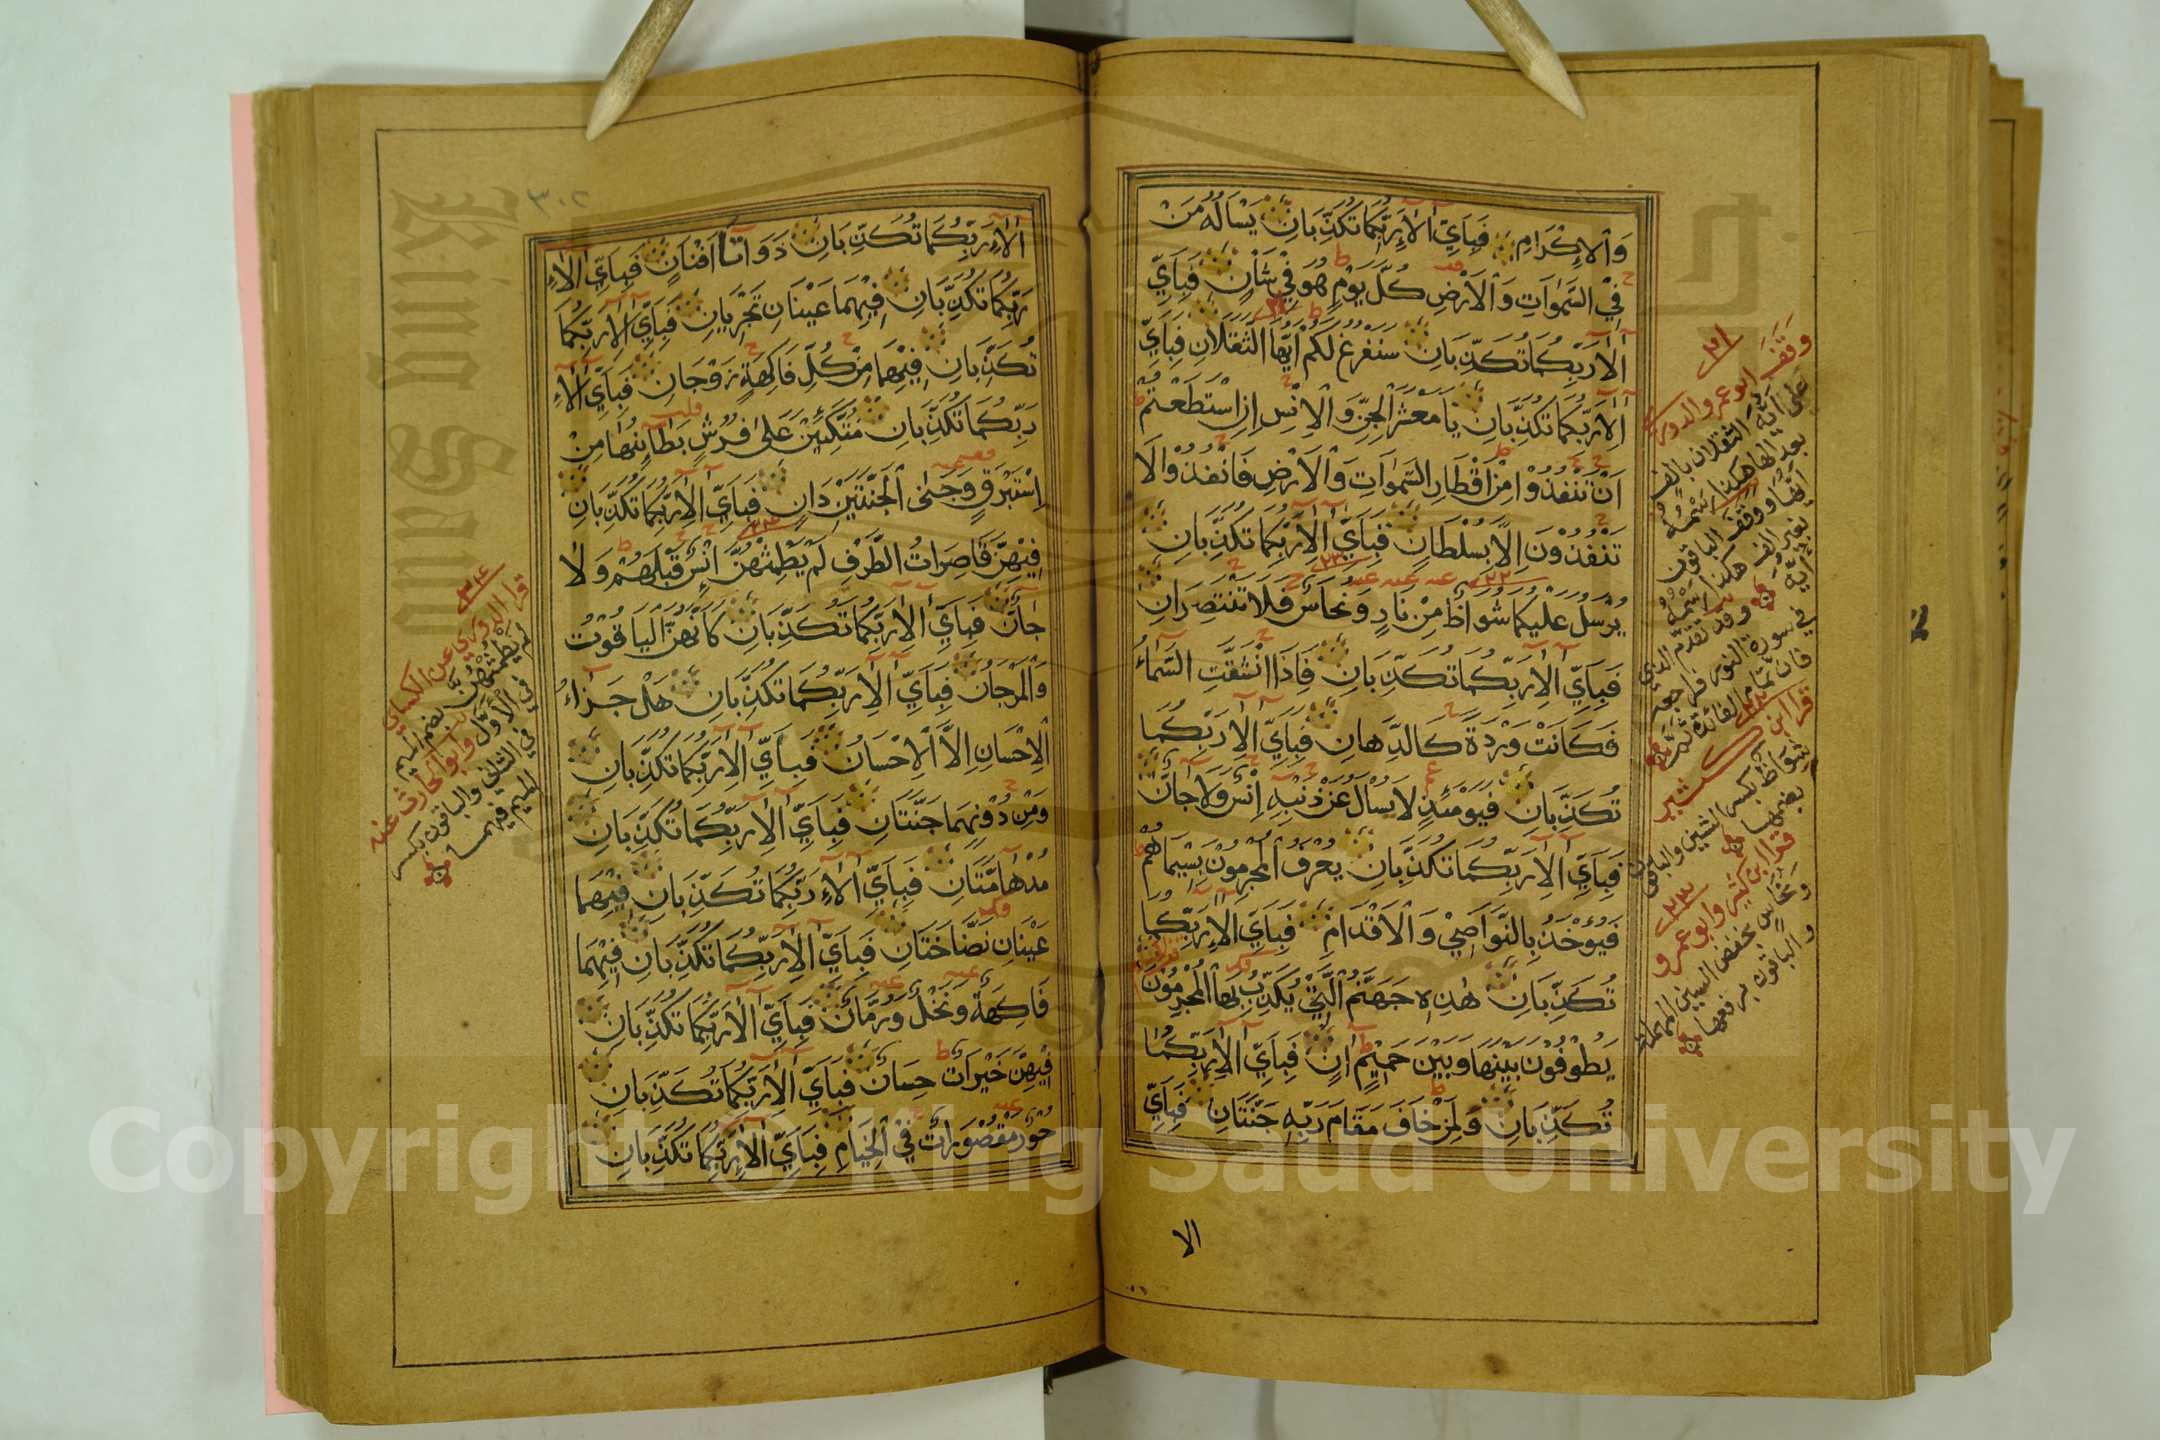 وَالْاِكْرَامِ فَبِاَيِّ اٰلَاءِ رَبِّكُمَا تُكَذِّبَانِ يَسْاَلُهُ مَنْ
فِي السَّمٰوَاتِ وَالْاَرْضِ كُلَّ يَوْمٍ هُوَ فِيْ شَاْنٍ فَبِاَيِّ
اٰلَاءِ رَبِّكُمَا تُكَذِّبَانِ سَنَفْرُغُ لَكُمْ اَيُّهَا الثَّقَلَانِ فَبِاَيِّ
اٰلَاءِ رَبِّكُمَا تُكَذِّبَانِ يَا مَعْشَرَ الْجِنِّ وَالْاِنْسِ اِنِ اسْتَطَعْتُمْ
اَنْ تَنْفُذُوْا مِنْ اَقْطَارِ السَّمٰوَاتِ وَالْاَرْضِ فَانْفُذُوْا لَا
تَنْفُذُوْنَ اِلَّا بِسُلْطَانٍ فَبِاَيِّ اٰلَاءِ رَبِّكُمَا تُكَذِّبَانِ
يُرْسَلُ عَلَيْكُمَا شُوَاظٌ مِنْ نَارٍ وَنُحَاسٌ فَلَا تَنْتَصِرَانِ
فَبِاَيِّ اٰلَاءِ رَبِّكُمَا تُكَذِّبَانِ فَاِذَا انْشَقَّتِ السَّمَاءُ
فَكَانَتْ وَرْدَةً كَالدِّهَانِ فَبِاَيِّ اٰلَاءِ رَبِّكُمَا
تُكَذِّبَانِ فَيَوْمَئِذٍ لَا يُسْاَلُ عَنْ ذَنْبِهِ اِنْسٌ وَلَا جَانٌّ
فَبِاَيِّ اٰلَاءِ رَبِّكُمَا تُكَذِّبَانِ يُعْرَفُ الْمُجْرِمُوْنَ بِسِيْمَاهُمْ
فَيُؤْخَذُ بِالنَّوَاصِيْ وَالْاَقْدَامِ فَبِاَيِّ اٰلَاءِ رَبِّكُمَا
تُكَذِّبَانِ هٰذِهِ جَهَنَّمُ الَّتِيْ يُكَذِّبُ بِهَا الْمُجْرِمُوْنَ
يَطُوْفُوْنَ بَيْنَهَا وَبَيْنَ حَمِيْمٍ اٰنٍ فَبِاَيِّ اٰلَاءِ رَبِّكُمَا
تُكَذِّبَانِ وَلِمَنْ خَافَ مَقَامَ رَبِّهِ جَنَّتَانِ فَبِاَيِّ
الا
٢١
وَقَفَ ابو عمرو الدوري
على آية الثقلان بالف
بعد الهاء هكذا رسمه
ايها ووقف الباقون
بغير الف هكذا رسمه
وقد تقدم الذي
في سورة النور فراجعه
فان تمام الفائدة ثمة
قرا ابن كثير
شواظ بكسر الشين والباقون
بضمها
٢٣
قرا ابن كثير وابو عمرو
ونحاس بخفض السين المهملة
والباقون برفعها
٣٠٢
اٰلَاءِ رَبِّكُمَا تُكَذِّبَانِ ذَوَاتَا اَفْنَانٍ فَبِاَيِّ اٰلَاءِ
رَبِّكُمَا تُكَذِّبَانِ فِيْهِمَا عَيْنَانِ تَجْرِيَانِ فَبِاَيِّ اٰلَاءِ رَبِّكُمَا
تُكَذِّبَانِ فِيْهِمَا مِنْ كُلِّ فَاكِهَةٍ زَوْجَانِ فَبِاَيِّ اٰلَاءِ
رَبِّكُمَا تُكَذِّبَانِ مُتَّكِئِيْنَ عَلٰى فُرُشٍ بَطَائِنُهَا مِنْ
اِسْتَبْرَقٍ وَجَنَى الْجَنَّتَيْنِ دَانٍ فَبِاَيِّ اٰلَاءِ رَبِّكُمَا تُكَذِّبَانِ
فِيْهِنَّ قَاصِرَاتُ الطَّرْفِ لَمْ يَطْمِثْهُنَّ اِنْسٌ قَبْلَهُمْ وَلَا
جَانٌّ فَبِاَيِّ اٰلَاءِ رَبِّكُمَا تُكَذِّبَانِ كَاَنَّهُنَّ الْيَاقُوْتُ
وَالْمَرْجَانُ فَبِاَيِّ اٰلَاءِ رَبِّكُمَا تُكَذِّبَانِ هَلْ جَزَاءُ
الْاِحْسَانِ اِلَّا الْاِحْسَانُ فَبِاَيِّ اٰلَاءِ رَبِّكُمَا تُكَذِّبَانِ
وَمِنْ دُوْنِهِمَا جَنَّتَانِ فَبِاَيِّ اٰلَاءِ رَبِّكُمَا تُكَذِّبَانِ
مُدْهَامَّتَانِ فَبِاَيِّ اٰلَاءِ رَبِّكُمَا تُكَذِّبَانِ فِيْهِمَا
عَيْنَانِ نَضَّاخَتَانِ فَبِاَيِّ اٰلَاءِ رَبِّكُمَا تُكَذِّبَانِ فِيْهِمَا
فَاكِهَةٌ وَنَخْلٌ وَرُمَّانٌ فَبِاَيِّ اٰلَاءِ رَبِّكُمَا تُكَذِّبَانِ
فِيْهِنَّ خَيْرَاتٌ حِسَانٌ فَبِاَيِّ اٰلَاءِ رَبِّكُمَا تُكَذِّبَانِ
حُوْرٌ مَقْصُوْرَاتٌ فِي الْخِيَامِ فَبِاَيِّ اٰلَاءِ رَبِّكُمَا تُكَذِّبَانِ
قرا الدوري عن الكسائي
لم يطمثهن بضم الميم
في الاول وابو الحارث عنه
في الثاني والباقون بكسر
الميم فيهما
King Saud
Copyright © King Saud University